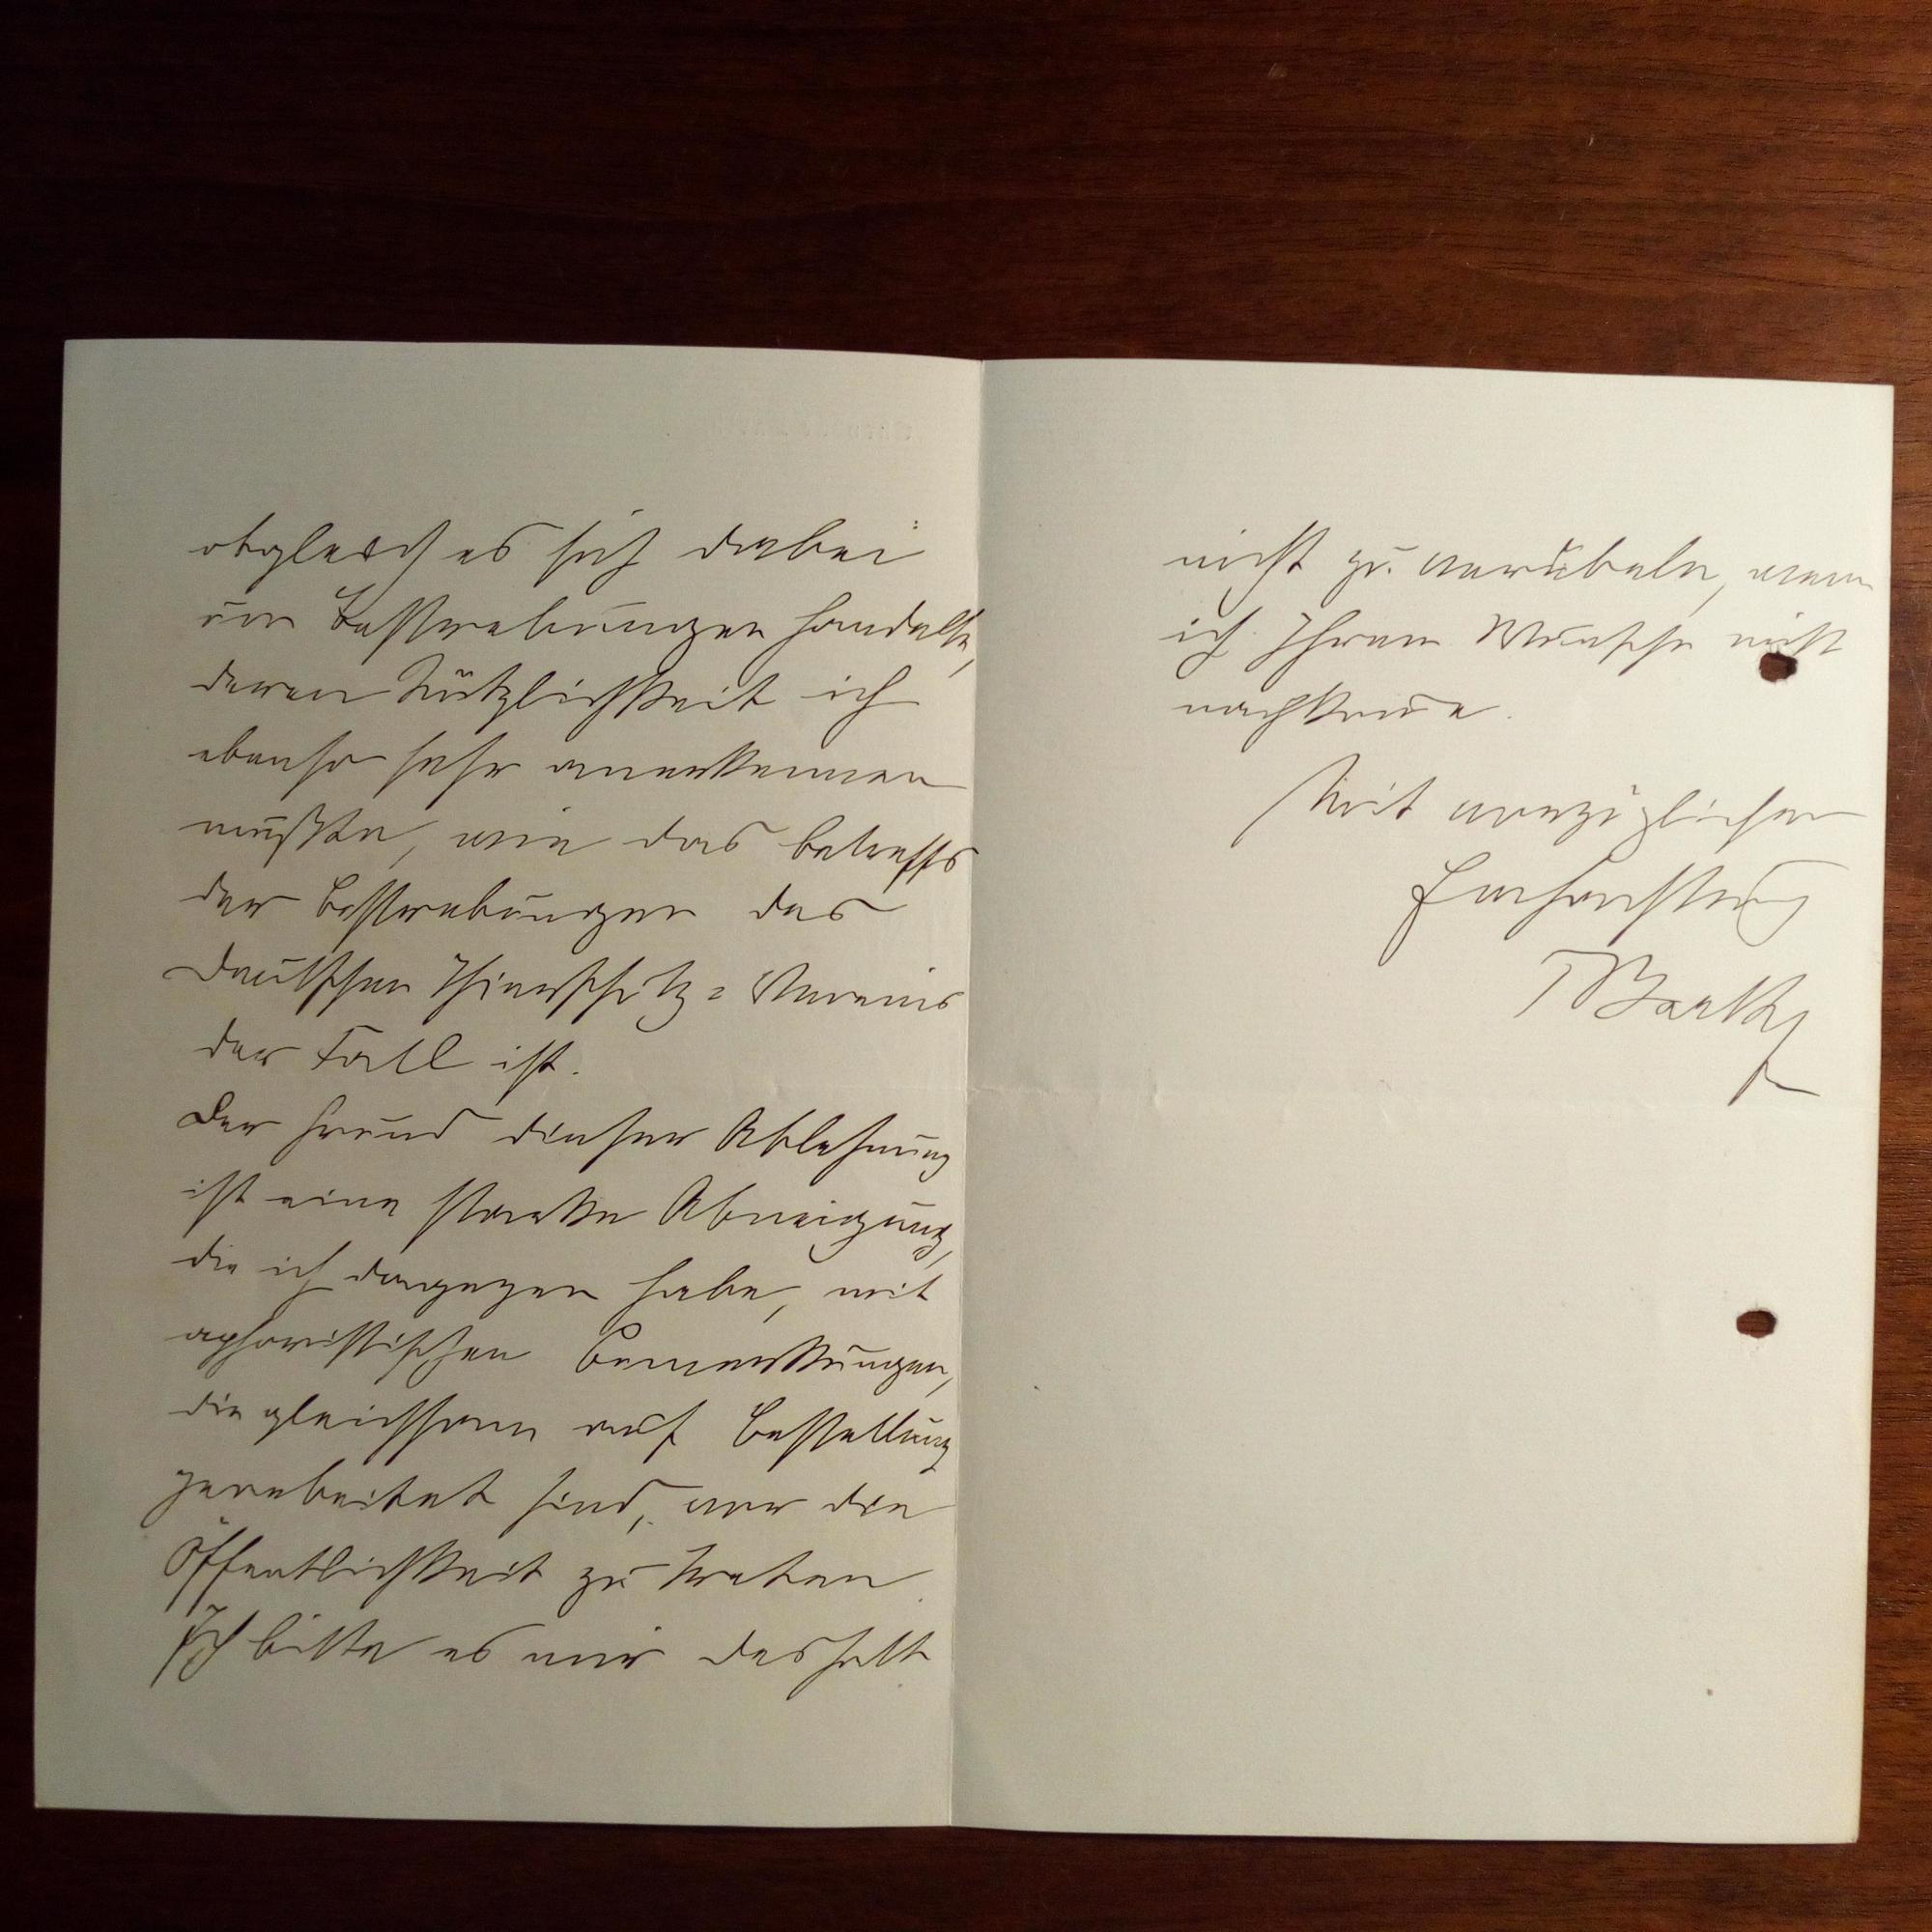 obgleich es sich dabei
um Bestrebungen handelte,
deren Nützlichkeit ich
ebenso sehr anerkennen
mußte, wie das betreffs
der Bestrebungen des
Deutschen Thierschutz=Vereins
der Fall ist.
Der Grund dieser Ablehnung
ist eine starke Abneigung,
die ich dagegen habe, mit
aphoristischen Bemerkungen,
die gleichsam auf Bestellung
gearbeitet sind, vor die
Öffentlichkeit zu treten.
Ich bitte es mir deshalb
nicht zu verübeln, wenn
ich Ihrem Wunsche nicht
nachkomme.
Mit vorzüglicher
Hochachtung
TBarth